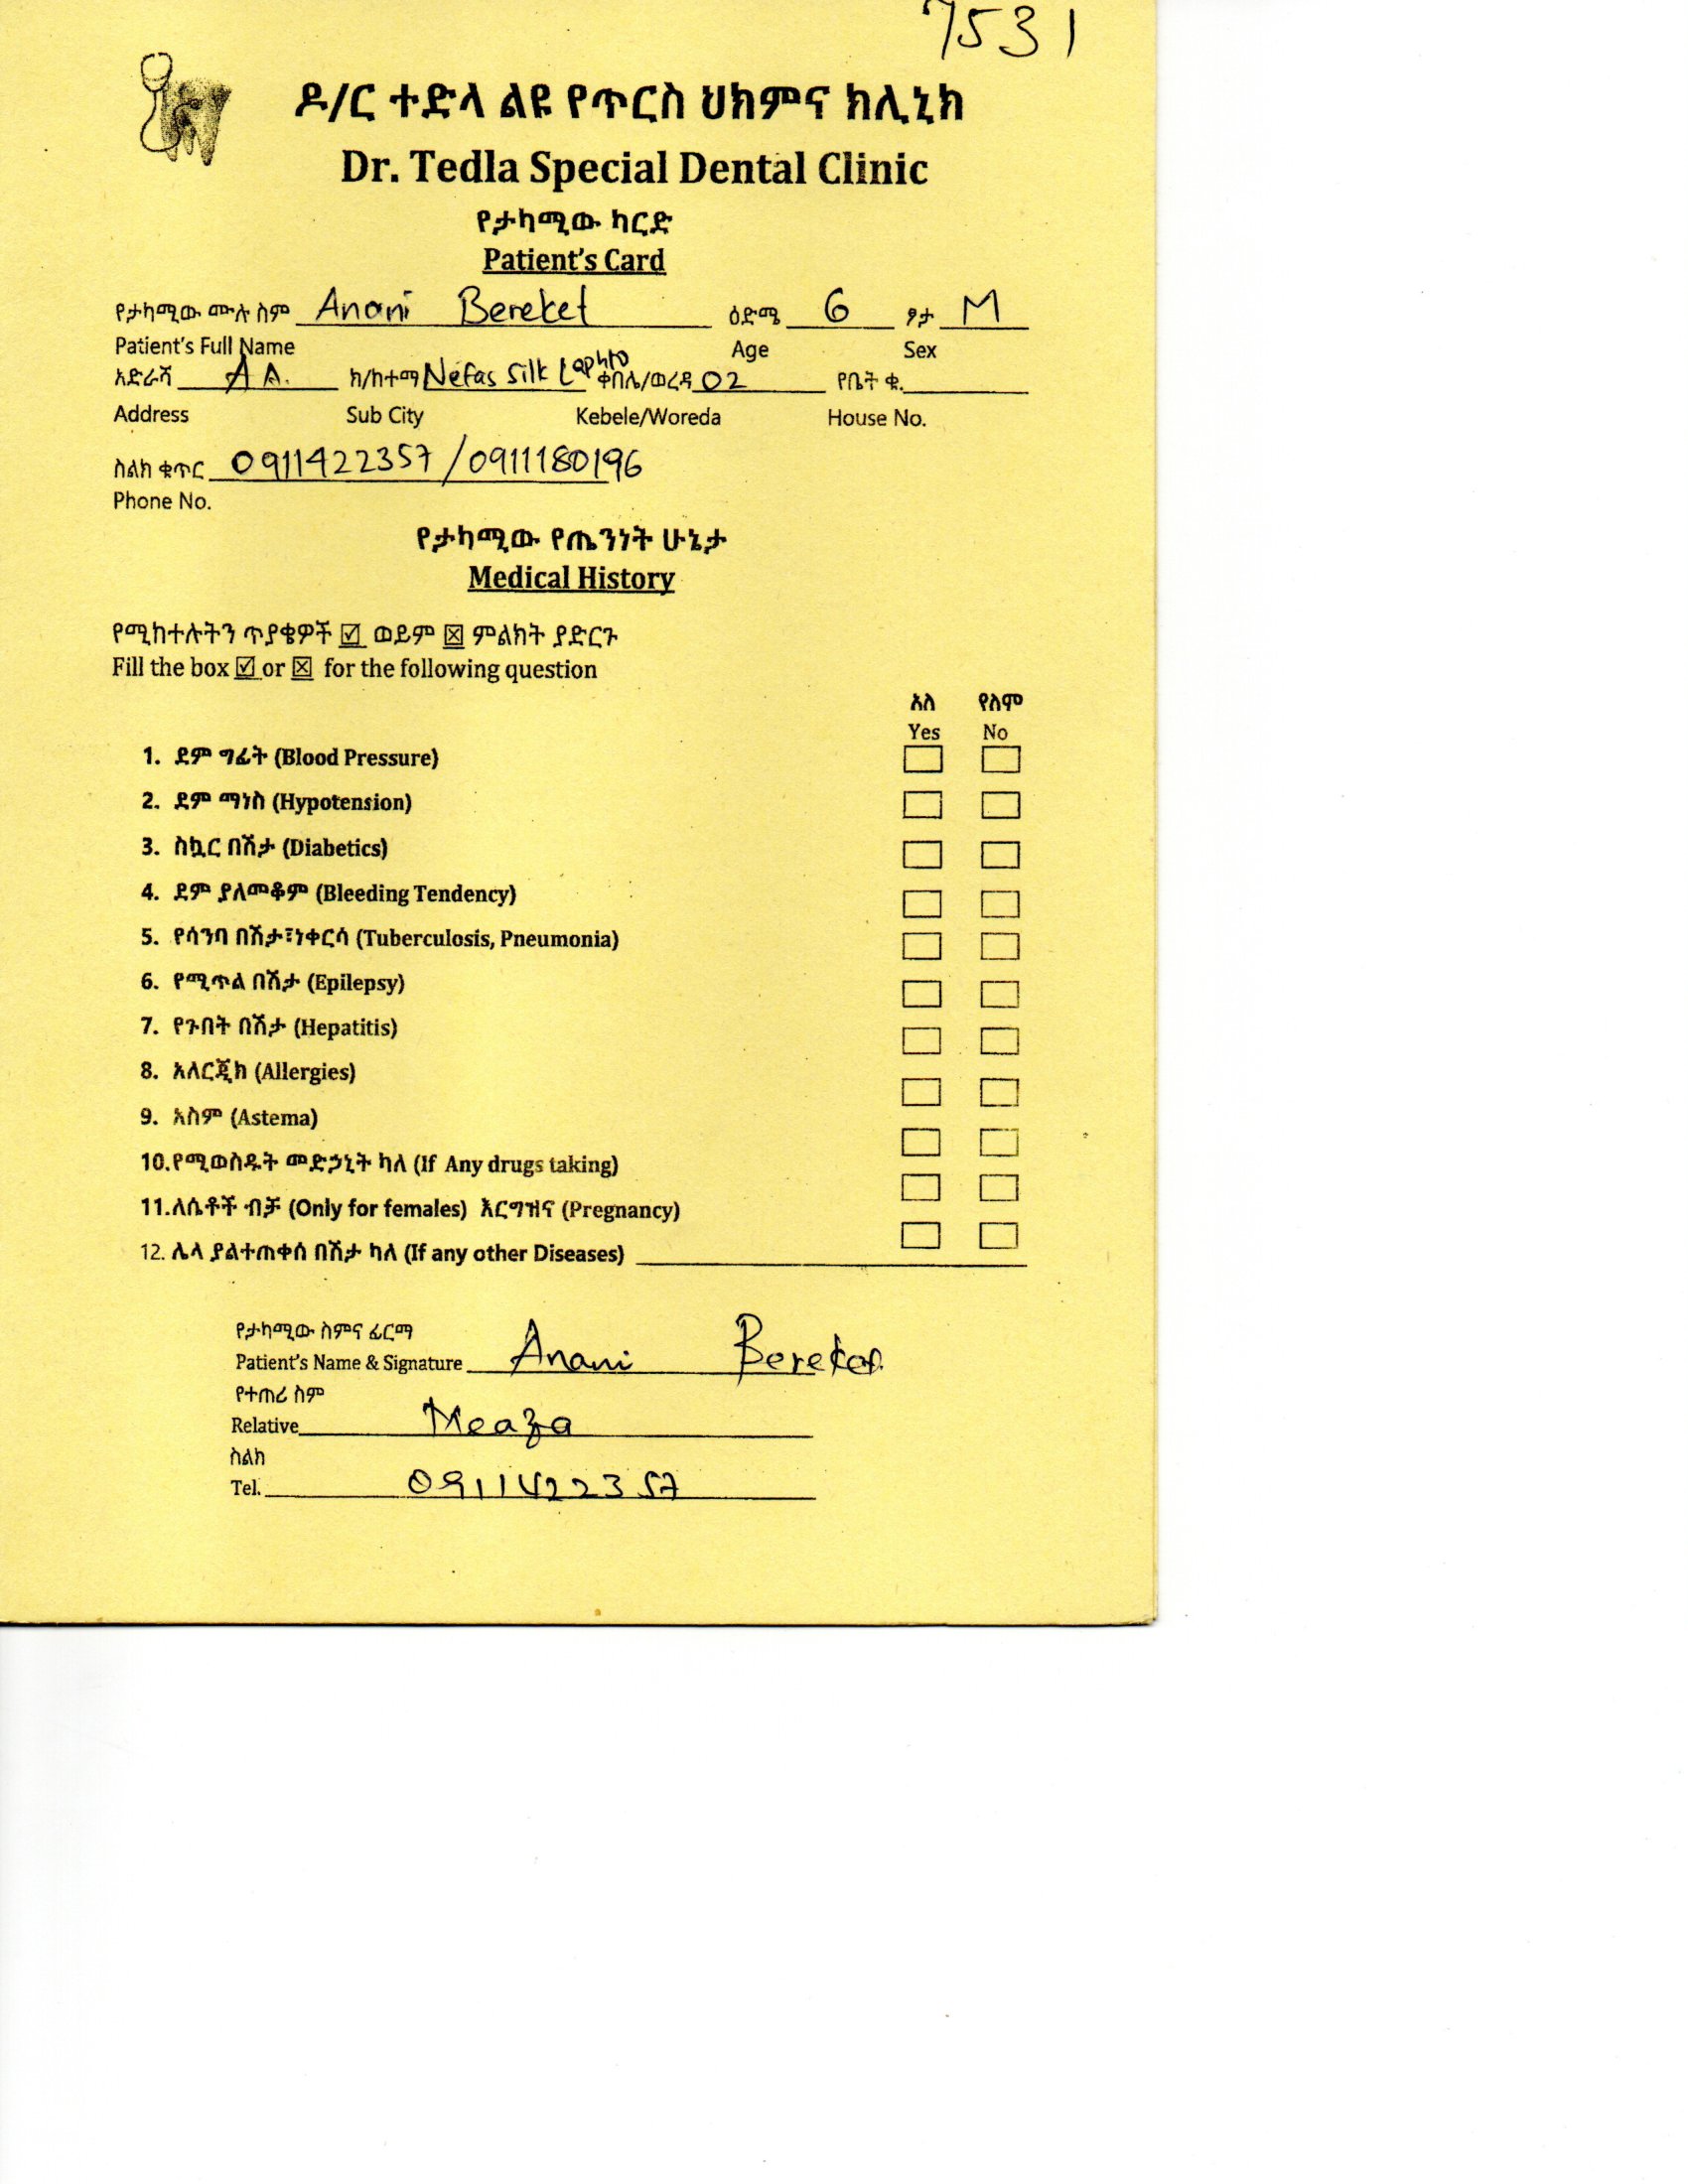 7531
ዶ/ር ተድላ ልዩ የጥርስ ህክምና ክሊኒክ
Dr. Tedla Special Dental Clinic
የታካሚው ካርድ
Patient's Card
የታካሚው ሙሉ ስም Anani Bereket ዕድሜ 6 ፆታ M
Patient's Full Name Age Sex
አድራሻ A A. ክ/ከተማ Nefas Silk Laphto ቀበሌ/ወረዳ 02 የቤት ቁ.
Address Sub City Kebele/Woreda House No.
ስልክ ቁጥር 0911422357 /0911180196
Phone No.
የታካሚው የጤንነት ሁኔታ
Medical History
የሚከተሉትን ጥያቄዎች ☑ ወይም ☒ ምልክት ያድርጉ
Fill the box ☑ or ☒ for the following question
አለ የለም
Yes No
1. ደም ግፊት (Blood Pressure)
2. ደም ማነስ (Hypotension)
3. ስኳር በሽታ (Diabetics)
4. ደም ያለመቆም (Bleeding Tendency)
5. የሳንባ በሽታ፣ነቀርሳ (Tuberculosis, Pneumonia)
6. የሚጥል በሽታ (Epilepsy)
7. የጉበት በሽታ (Hepatitis)
8. አለርጂክ (Allergies)
9. አስም (Astema)
10.የሚወስዱት መድኃኒት ካለ (If Any drugs taking)
11.ለሴቶች ብቻ (Only for females) እርግዝና (Pregnancy)
12. ሌላ ያልተጠቀሰ በሽታ ካለ (If any other Diseases)
የታካሚው ስምና ፊርማ
Patient's Name & Signature Anani Bereket
የተጠሪ ስም
Relative Meaza
ስልክ
Tel. 0911422357